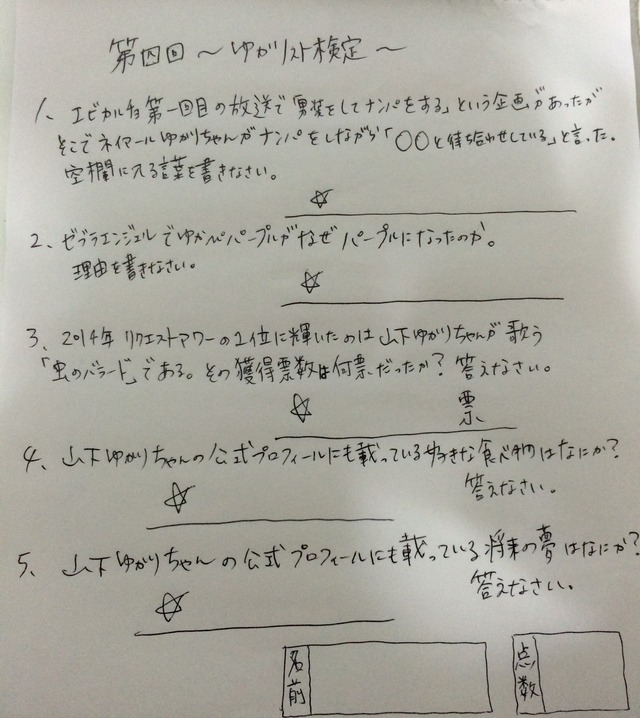 第四回 〜ゆがリスト検定〜
1、エビカルチョ第一回目の放送で「男装をしてナンパをする」という企画があったが
そこでネイマールゆかりちゃんがナンパをしながら「〇〇と待ち合わせしている」と言った。
空欄に入る言葉を書きなさい。
☆
2、ゼブラエンジェルでゆかぺパープルがなぜパープルになったのか。
理由を書きなさい。
☆
3、2014年リクエストアワーの1位に輝いたのは山下ゆかりちゃんが歌う
「虫のバラード」である。その獲得票数は何票だったか？答えなさい。
☆ 票
4、山下ゆかりちゃんの公式プロフィールにも載っている好きな食べ物はなにか？
答えなさい。
☆
5、山下ゆかりちゃんの公式プロフィールにも載っている将来の夢はなにか？
答えなさい。
☆
名前 点数